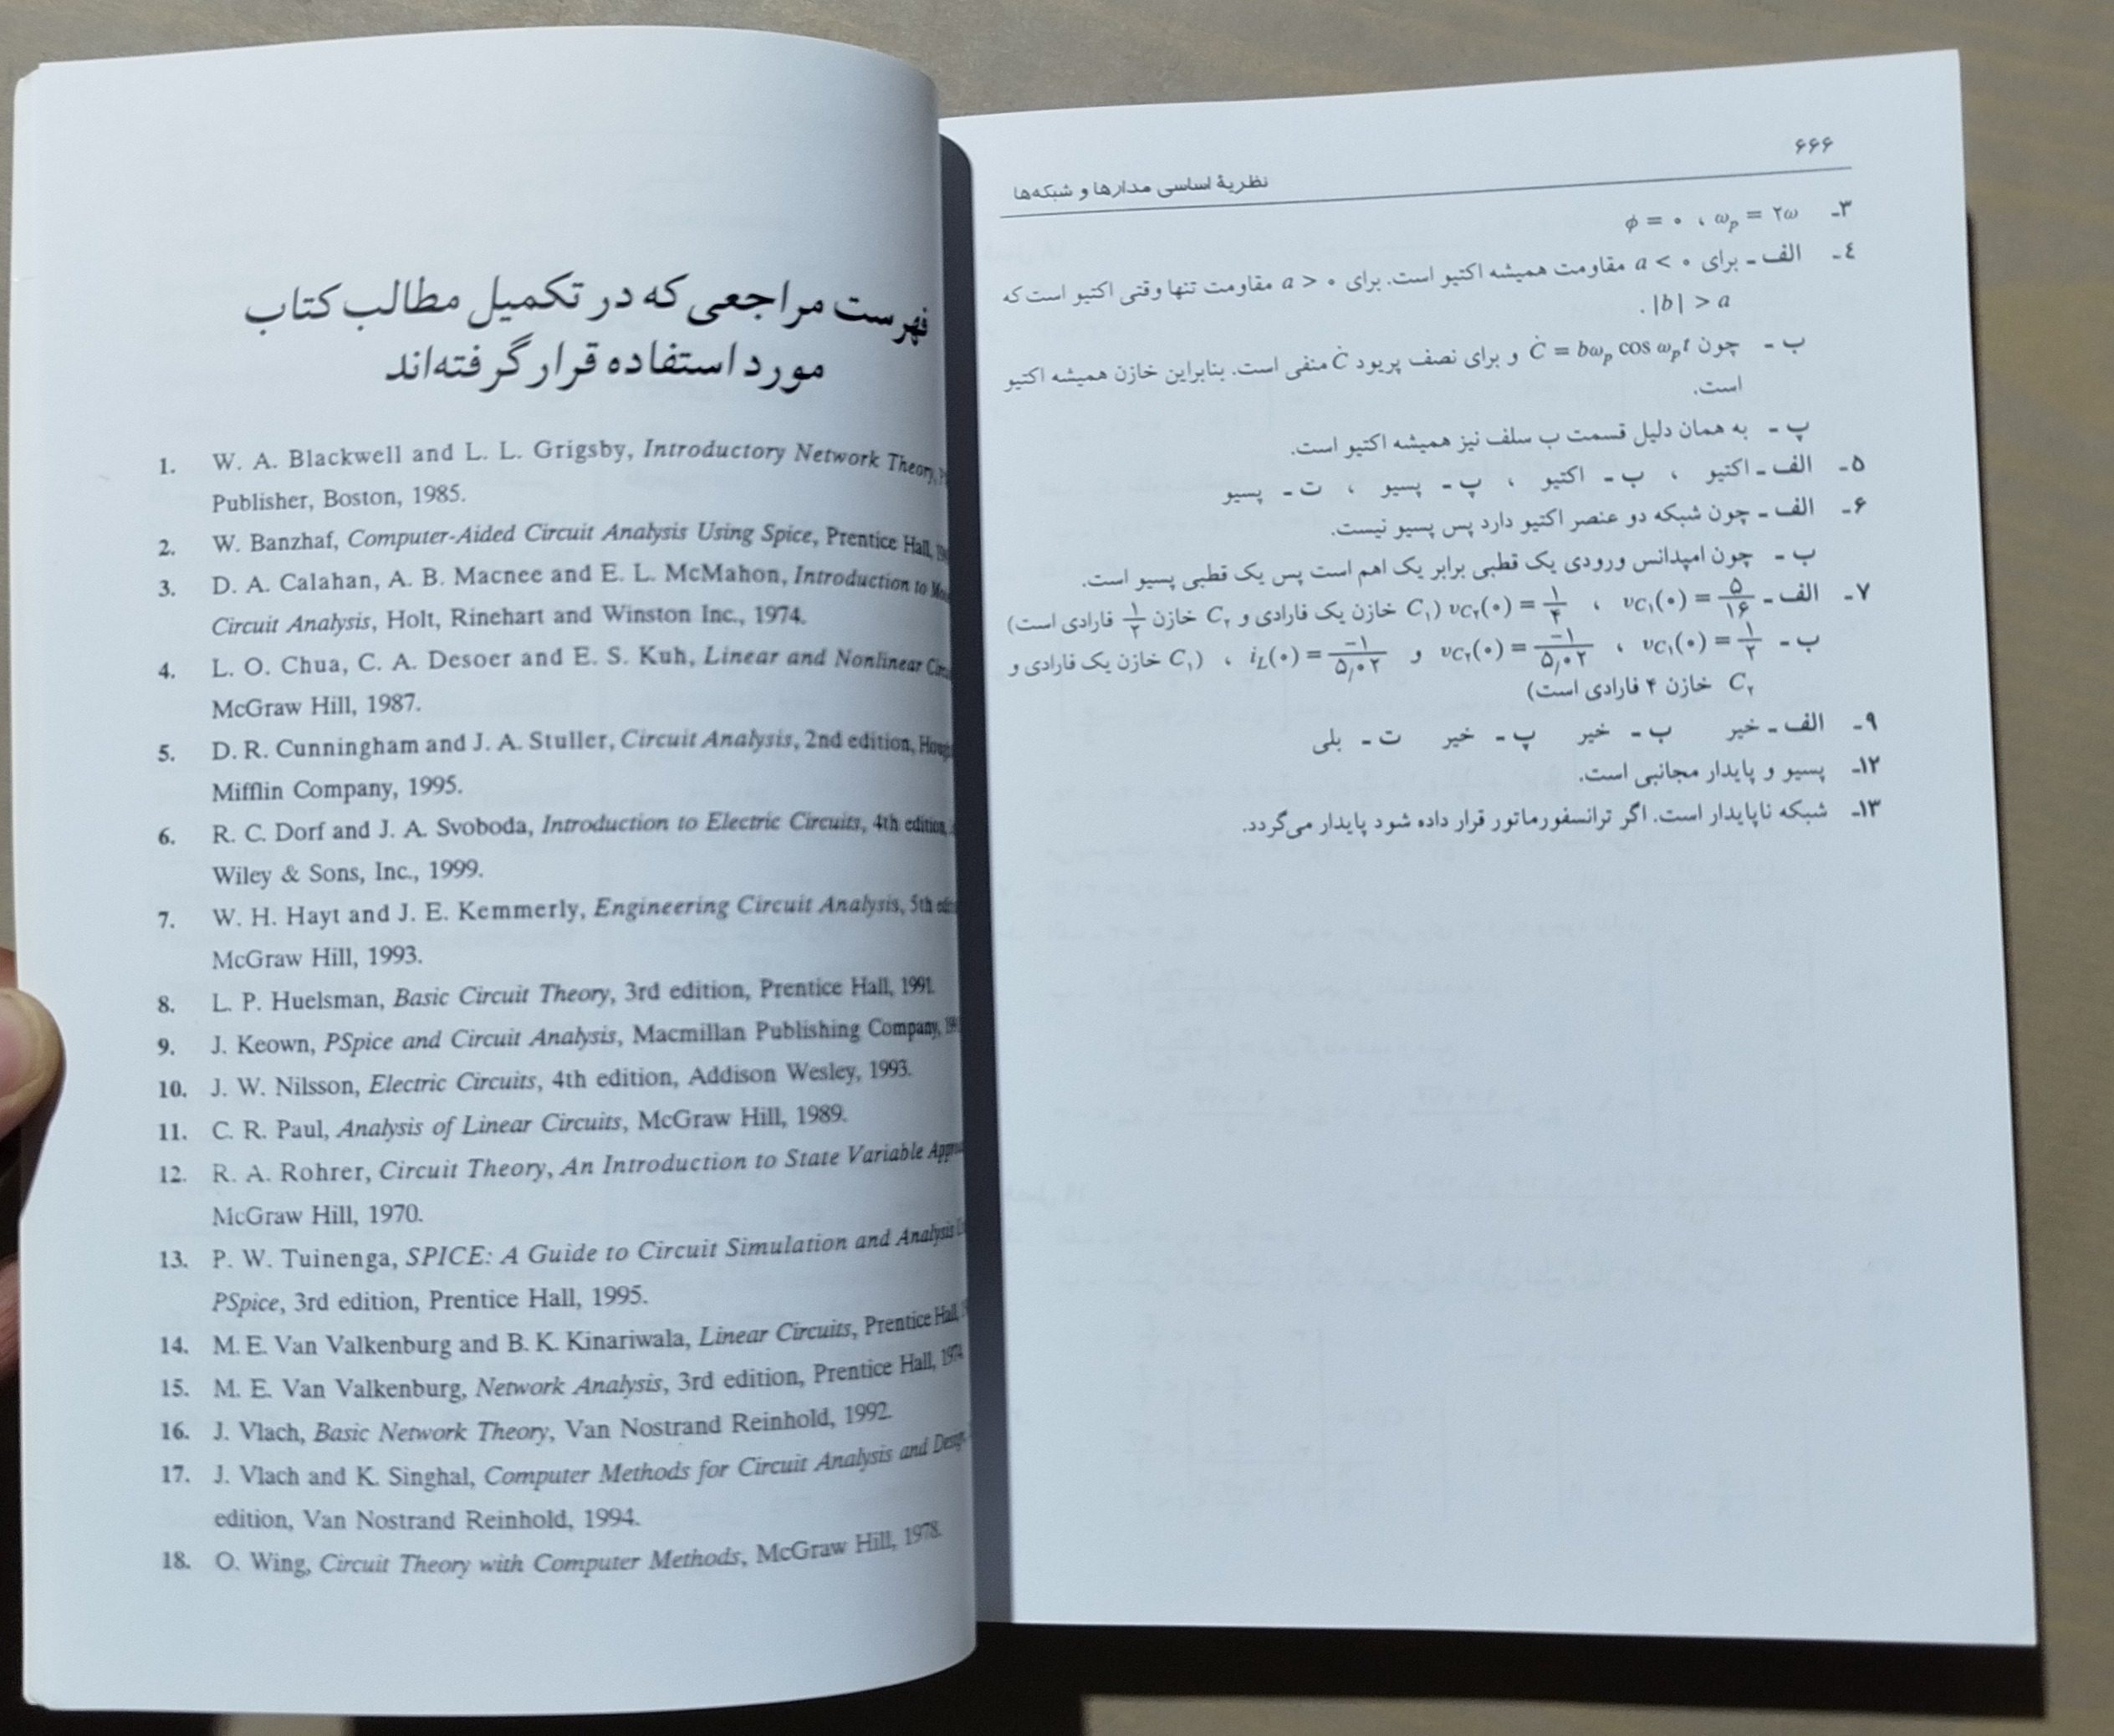 ۶۶۶
نظریهٔ اساسی مدارها و شبکه‌ها
۳ـ ω_p = ۲ω ، φ = ۰
٤ـ الف ـ برای a < ۰ مقاومت همیشه اکتیو است. برای a > ۰ مقاومت تنها وقتی اکتیو است که
|b| > a .
ب ـ چون Ċ = bω_p cos ω_p t و برای نصف پریود Ċ منفی است. بنابراین خازن همیشه اکتیو
است.
پ ـ به همان دلیل قسمت ب سلف نیز همیشه اکتیو است.
۵ـ الف ـ اکتیو ، ب ـ اکتیو ، پ ـ پسیو ، ت ـ پسیو
۶ـ الف ـ چون شبکه دو عنصر اکتیو دارد پس پسیو نیست.
ب ـ چون امپدانس ورودی یک قطبی برابر یک اهم است پس یک قطبی پسیو است.
۷ـ الف ـ v_C۱(۰) = ۵/۱۶ ، v_C۲(۰) = ۱/۴ (C۱ خازن یک فارادی و C۲ خازن ۱/۲ فارادی است)
ب ـ v_C۱(۰) = ۱/۲ ، v_C۲(۰) = −۱/۵٫۰۲ و i_L(۰) = −۱/۵٫۰۲ ، (C۱ خازن یک فارادی و
C۲ خازن ۴ فارادی است)
۹ـ الف ـ خیر ب ـ خیر پ ـ خیر ت ـ بلی
۱۲ـ پسیو و پایدار مجانبی است.
۱۳ـ شبکه ناپایدار است. اگر ترانسفورماتور قرار داده شود پایدار می‌گردد.
فهرست مراجعی که در تکمیل مطالب کتاب
مورد استفاده قرار گرفته‌اند
1. W. A. Blackwell and L. L. Grigsby, Introductory Network Theory,
Publisher, Boston, 1985.
2. W. Banzhaf, Computer-Aided Circuit Analysis Using Spice, Prentice Hall,
3. D. A. Calahan, A. B. Macnee and E. L. McMahon, Introduction to
Circuit Analysis, Holt, Rinehart and Winston Inc., 1974.
4. L. O. Chua, C. A. Desoer and E. S. Kuh, Linear and Nonlinear
McGraw Hill, 1987.
5. D. R. Cunningham and J. A. Stuller, Circuit Analysis, 2nd edition,
Mifflin Company, 1995.
6. R. C. Dorf and J. A. Svoboda, Introduction to Electric Circuits, 4th edition,
Wiley & Sons, Inc., 1999.
7. W. H. Hayt and J. E. Kemmerly, Engineering Circuit Analysis, 5th
McGraw Hill, 1993.
8. L. P. Huelsman, Basic Circuit Theory, 3rd edition, Prentice Hall, 1991.
9. J. Keown, PSpice and Circuit Analysis, Macmillan Publishing Company,
10. J. W. Nilsson, Electric Circuits, 4th edition, Addison Wesley, 1993.
11. C. R. Paul, Analysis of Linear Circuits, McGraw Hill, 1989.
12. R. A. Rohrer, Circuit Theory, An Introduction to State Variable
McGraw Hill, 1970.
13. P. W. Tuinenga, SPICE: A Guide to Circuit Simulation and Analysis
PSpice, 3rd edition, Prentice Hall, 1995.
14. M. E. Van Valkenburg and B. K. Kinariwala, Linear Circuits, Prentice Hall,
15. M. E. Van Valkenburg, Network Analysis, 3rd edition, Prentice Hall, 1974.
16. J. Vlach, Basic Network Theory, Van Nostrand Reinhold, 1992.
17. J. Vlach and K. Singhal, Computer Methods for Circuit Analysis and
edition, Van Nostrand Reinhold, 1994.
18. O. Wing, Circuit Theory with Computer Methods, McGraw Hill, 1978.